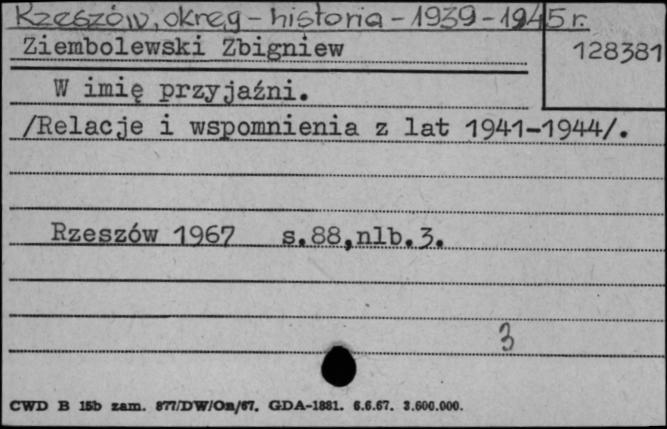 Rzeszów, okręg – historia – 1939 – 1945 r.
Ziembolewski Zbigniew
128381
W imię przyjaźni.
/Relacje i wspomnienia z lat 1941-1944/.
Rzeszów 1967 s.88,nlb.3.
3
CWD B 15b zam. 877/DW/Om/67. GDA-1881. 6.6.67. 3.600.000.